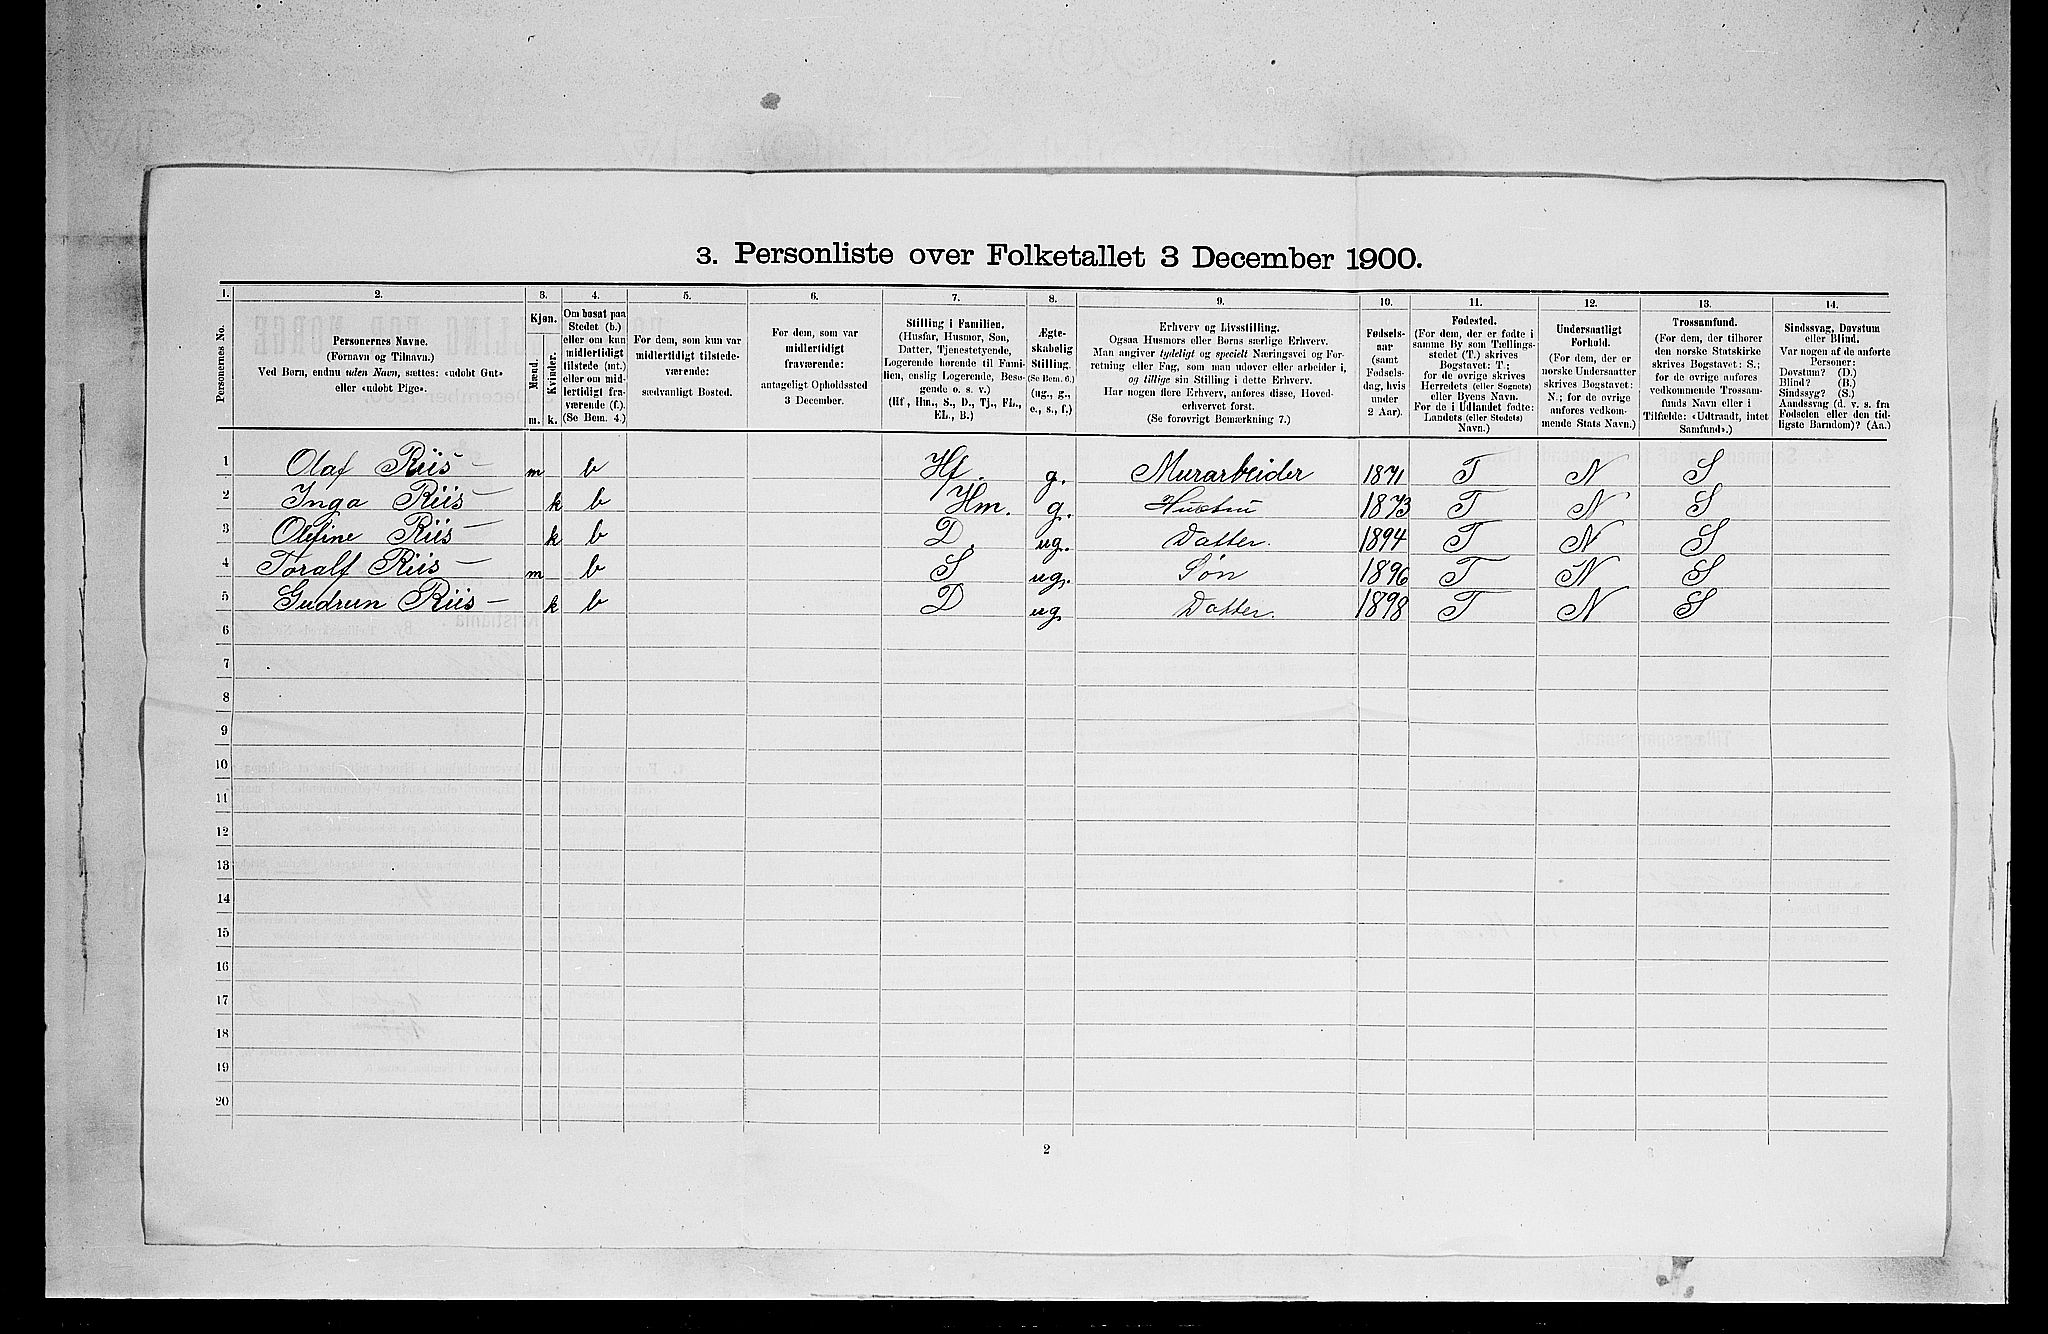 3. Personliste over Folketallet 3 December 1900.
1. 2. 3. 4. 5. 6. 7. 8. 9. 10. 11. 12. 13. 14.
Personernes No.
Personernes Navne.
(Fornavn og Tilnavn.)
Ved Børn, endnu uden Navn, sættes: «udøbt Gut»
eller «udøbt Pige».
Kjøn.
Mænd.
Kvinder.
m. k.
Om bosat paa
Stedet (b.)
eller om kun
midlertidigt
tilstede (mt.)
eller om mid-
lertidigt fra-
værende (f.).
(Se Bem. 4.)
For dem, som kun var
midlertidigt tilstede-
værende:
sædvanligt Bosted.
For dem, som var
midlertidigt
fraværende:
antageligt Opholdssted
3 December.
Stilling i Familien.
(Husfar, Husmor, Søn,
Datter, Tjenestetyende,
Logerende hørende til Fami-
lien, enslig Logerende, Besø-
gende o. s. v.)
(Hf., Hm., S., D., Tj., FL.,
EL., B.)
Ægte-
skabelig
Stilling.
(Se Bem. 6.)
(ug., g.,
e., s., f.)
Erhverv og Livsstilling.
Ogsaa Husmors eller Børns særlige Erhverv.
Man angiver tydeligt og specielt Næringsvei og For-
retning eller Fag, som man udøver eller arbeider i,
og tillige sin Stilling i dette Erhverv.
Har nogen flere Erhverv, anføres disse, Hoved-
erhvervet først.
(Se forøvrigt Bemærkning 7.)
Fødsels-
aar
(samt
Fødsels-
dag, hvis
under
2 Aar).
Fødested.
(For dem, der er fødte i
samme By som Tællings-
stedet (T.) skrives
Bogstavet: T.;
for de øvrige skrives
Herredets (eller Sognets)
eller Byens Navn.
For de i Udlandet fødte:
Landets (eller Stedets)
Navn.)
Undersaatligt
Forhold.
(For dem, der er
norske Undersaatter
skrives Bogstavet:
N.; for de øvrige
anføres vedkom-
mende Stats Navn.)
Trossamfund.
(For dem, der tilhører
den norske Statskirke
skrives Bogstavet: S.;
for de øvrige anføres
vedkommende Trossam-
funds Navn eller i
Tilfælde: «Udtraadt, intet
Samfund».)
Sindssvag, Døvstum
eller Blind.
Var nogen af de anførte
Personer:
Døvstum? (D.)
Blind? (B.)
Sindssyg? (S.)
Aandssvag (d. v. s. fra
Fødselen eller den tid-
ligste Barndom)? (Aa.)
1 Olaf Riis – m b Hf. g. Murarbeider 1871 T N S
2 Inga Riis – k b Hm. g. Hustru 1873 T N S
3 Olefine Riis – k b D. ug. Datter. 1894 T N S
4 Toralf Riis – m b S ug. Søn 1896 T N S
5 Gudrun Riis – k b D ug. Datter. 1898 T N S
6
7
8
9
10
11
12
13
14
15
16
17
18
19
20
2